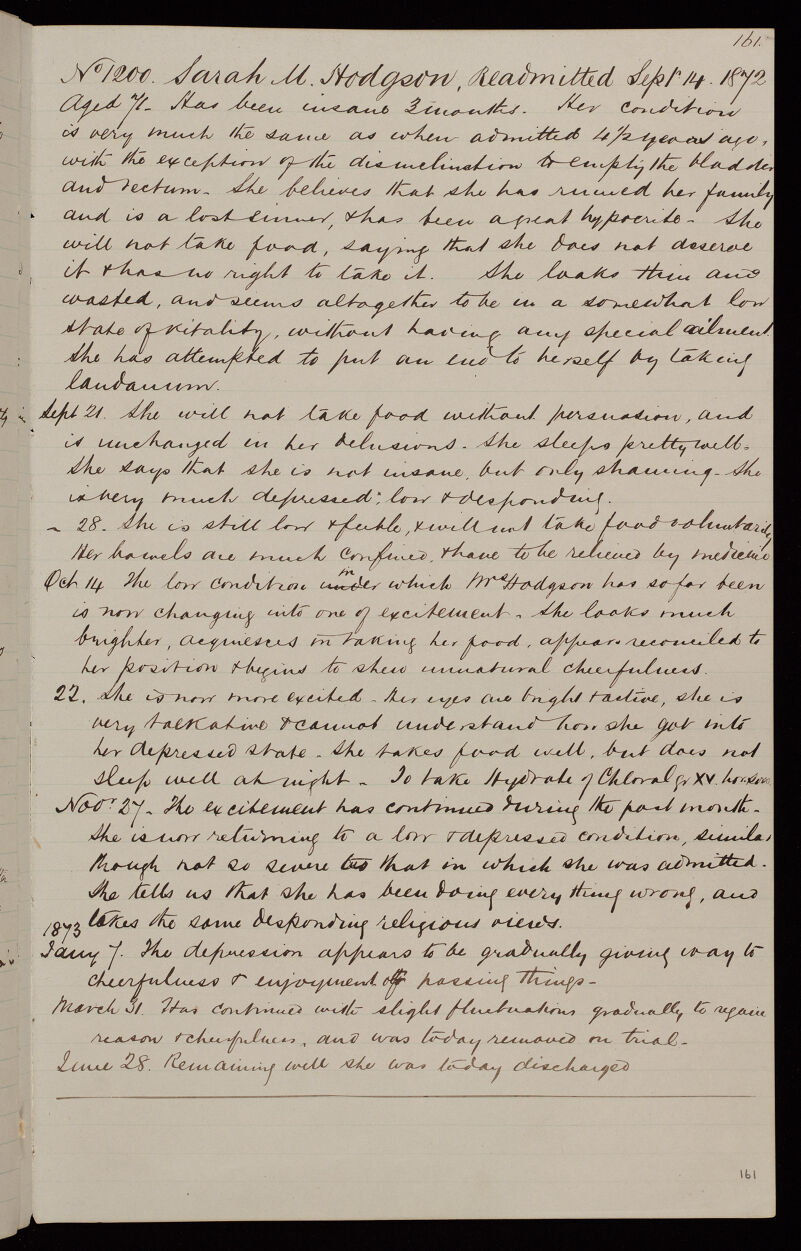 161.
No 1200. Sarah M. Hodgson, Readmitted Sept 14. 1872
Aged 71. Has been insane 3 months. Her condition
is very much the same as when admitted 4 1/2 years ago,
with the exception of the disinclination to empty the bladder
and rectum. She believes that she has ruined her family
and is a lost sinner, & has been a great hypocrite - She
will not take food, saying that she does not deserve
it & has no right to take it. She looks thin and
wasted, and seems altogether to be in a somewhat low
state of vitality, without having any special ailment.
She has attempted to put an end to herself by taking
laudanum.
Sept 21. She will not take food without persuasion, and
is unchanged in her delusions. She sleeps pretty well.
She says that she is not insane, but only shaming. She
is very much depressed; low & desponding.
- 28. She is still low & feeble, & will not take food voluntarily
Her bowels are much confined, & have to be relieved by medicine
Oct 14 The low condition in which Mrs Hodgson has so far been
is now changing into one of excitement. She looks much
brighter, acquiesces in taking her food, appears reconciled to
her position & begins to shew unnatural cheerfulness.
22. She is now more excited. Her eyes are bright & active, she is
very talkative & cannot understand how she got into
her depressed state. She takes food well, but does not
sleep well at night - To take Hydrate of Chloral gr XV.
Novr 27. The excitement has continued during the past month.
She is now returning to a low & depressed condition, similar
though not so severe to that in which she was admitted.
She tells us that she has been doing every thing wrong, and
takes the same desponding religious views.
1873
Jany 7. The depression appears to be gradually giving way to
cheerfulness & enjoyment of passing things -
March 31. Has continued with slight fluctuations gradually to regain
reason & cheerfulness, and was today removed on trial -
June 28. Remaining well she was today discharged
161